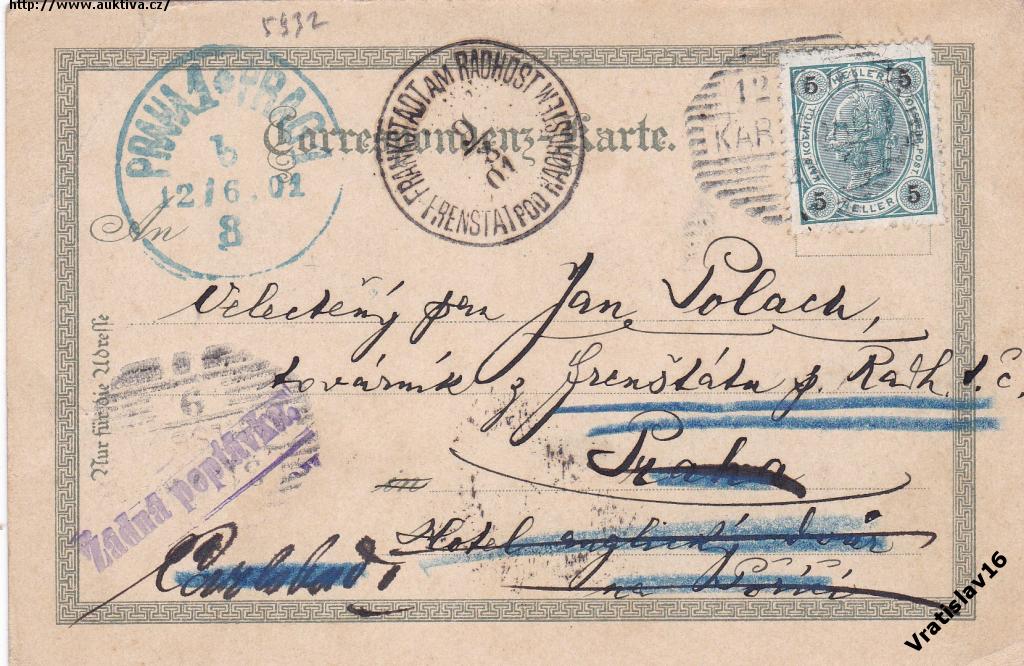 http://www.auktiva.cz/
5932
PRAHA 1 PRAG
b
12/6.01
8
FRANKSTADT AM RADHOST
FRENŠTÁT POD RADHOŠTĚM
9
01
12
KAR
5 HELLER 5
5 HELLER 5
Correspondenz-Karte.
An
Velectěný pan Jan Polach,
továrník z Frenštátu p. Radh. t. č.
Praha
Hotel anglický dvůr
na Poříčí
Carlsbad
Nur für die Adresse
6
Žádná poptávka
Vratislav16